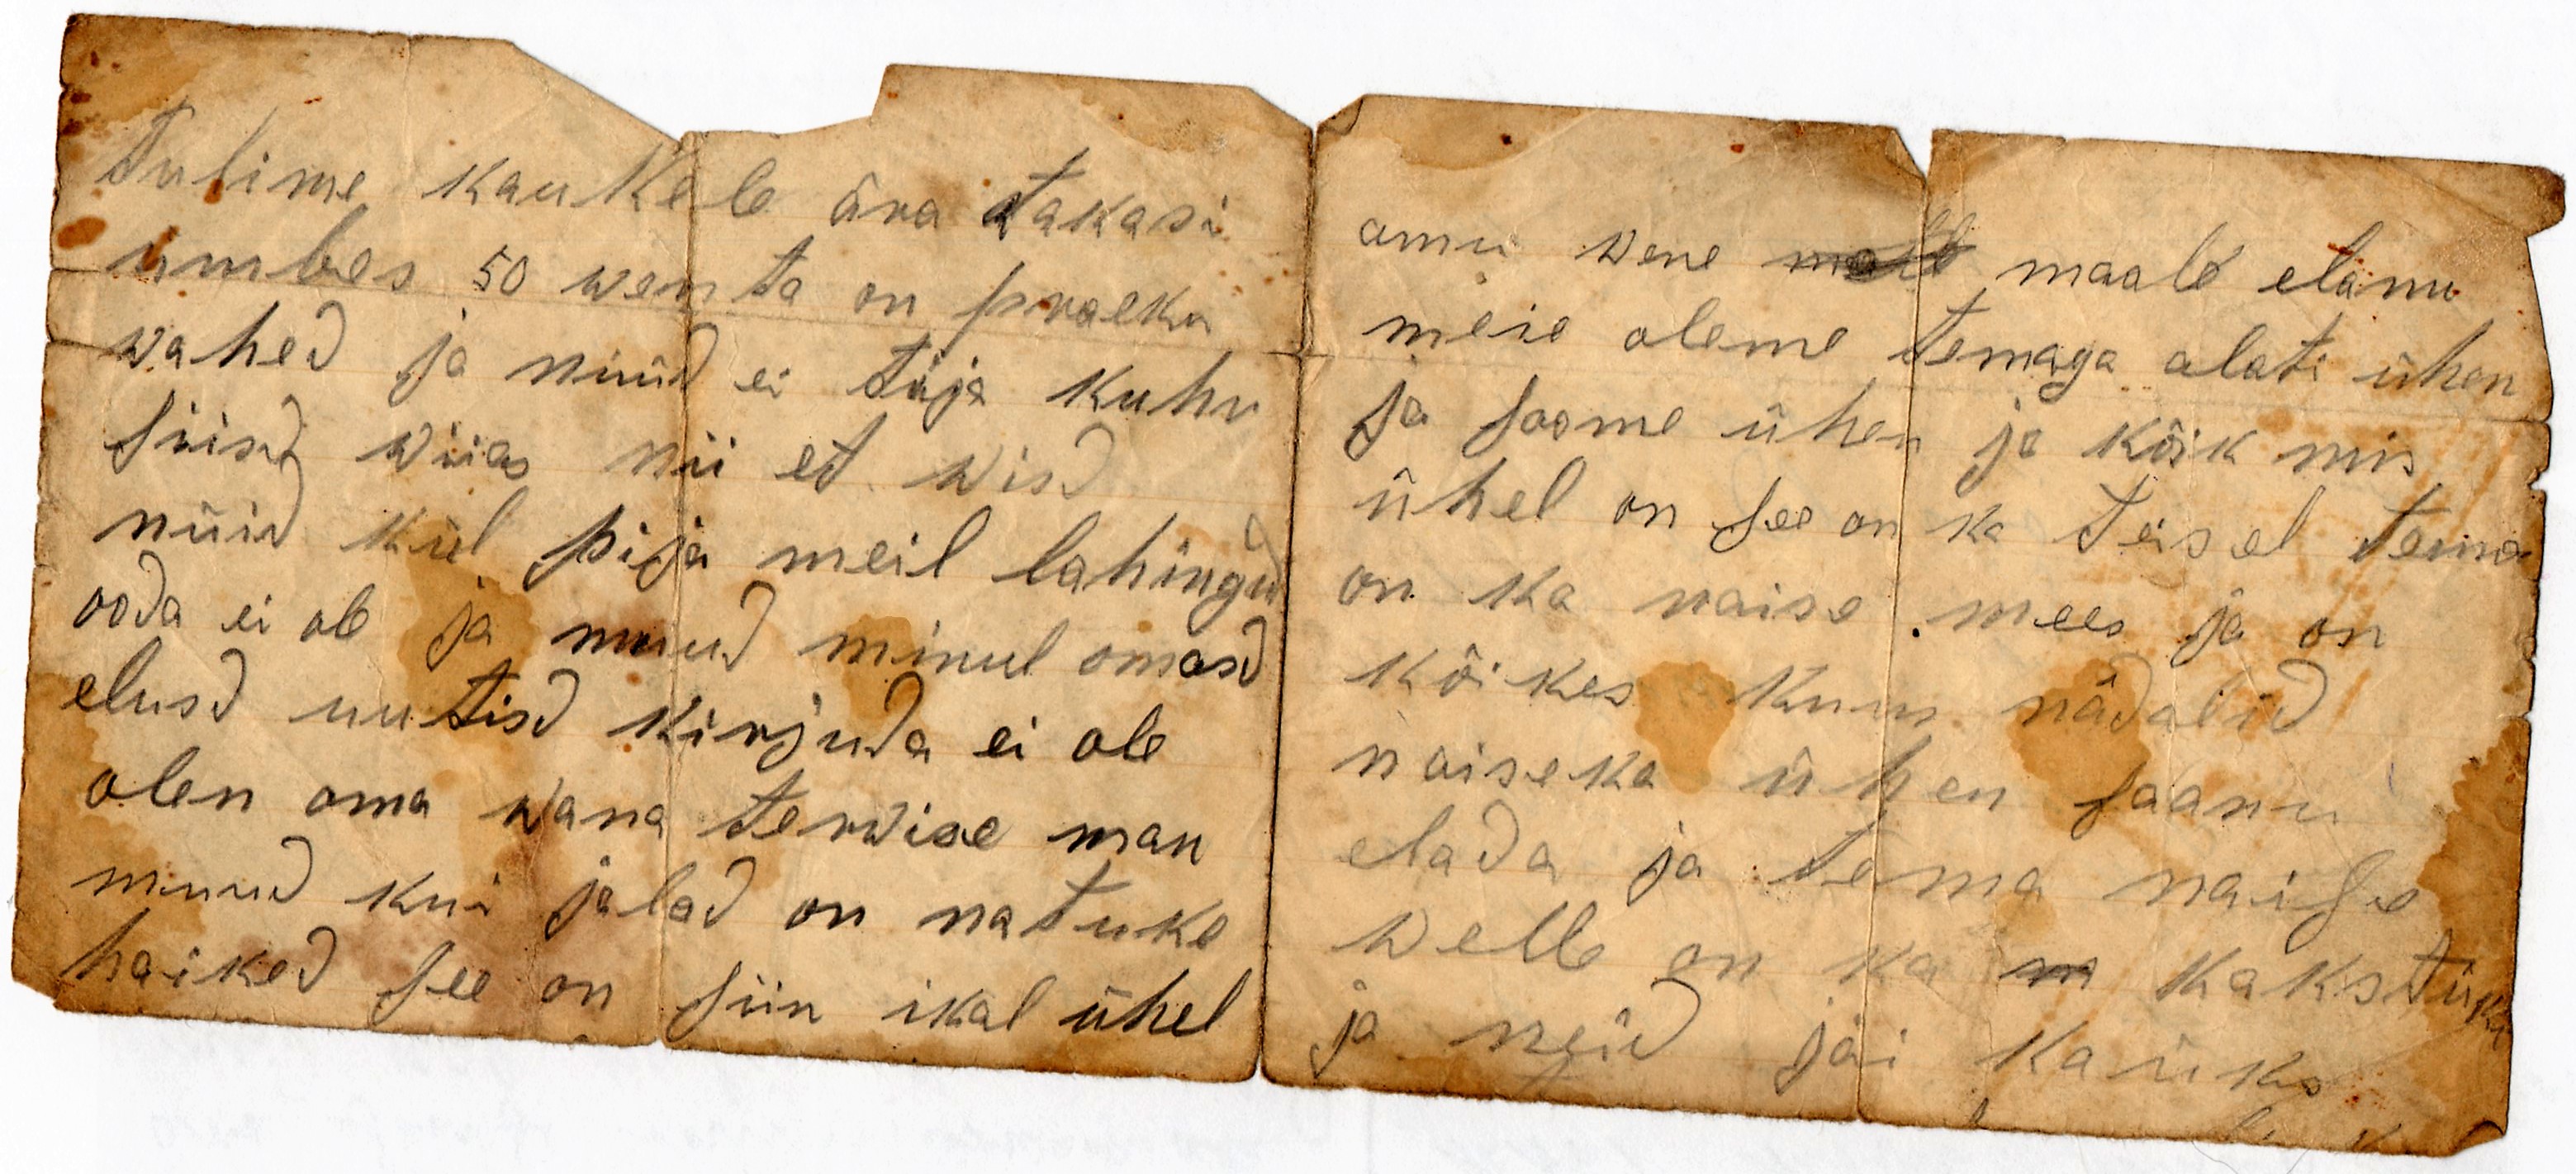 tulime kaukele ära takasi
umbes 50 wersta on praeku
wahed ja nüüd ei tija kuhu
siisd wiias nii et wisd
nüid kül pija meil lahingud
ooda ei ole ja muud minul omasd
elusd uutisd kirjuda ei ole
olen oma wana terwise man
muud kui jalad on natuke
haiked see on siin ikal ühel
omu wene maale elanu
meie oleme temaga alati ühen
ja soome ühen ja kõik mis
ühel on see on ka teisel tema
on ka naise mees ja on
kõikes kuus nädalid
naiseka ühen saanu
elada ja tema naise
welle on ka kakstüki
ja neid jäi ka üks